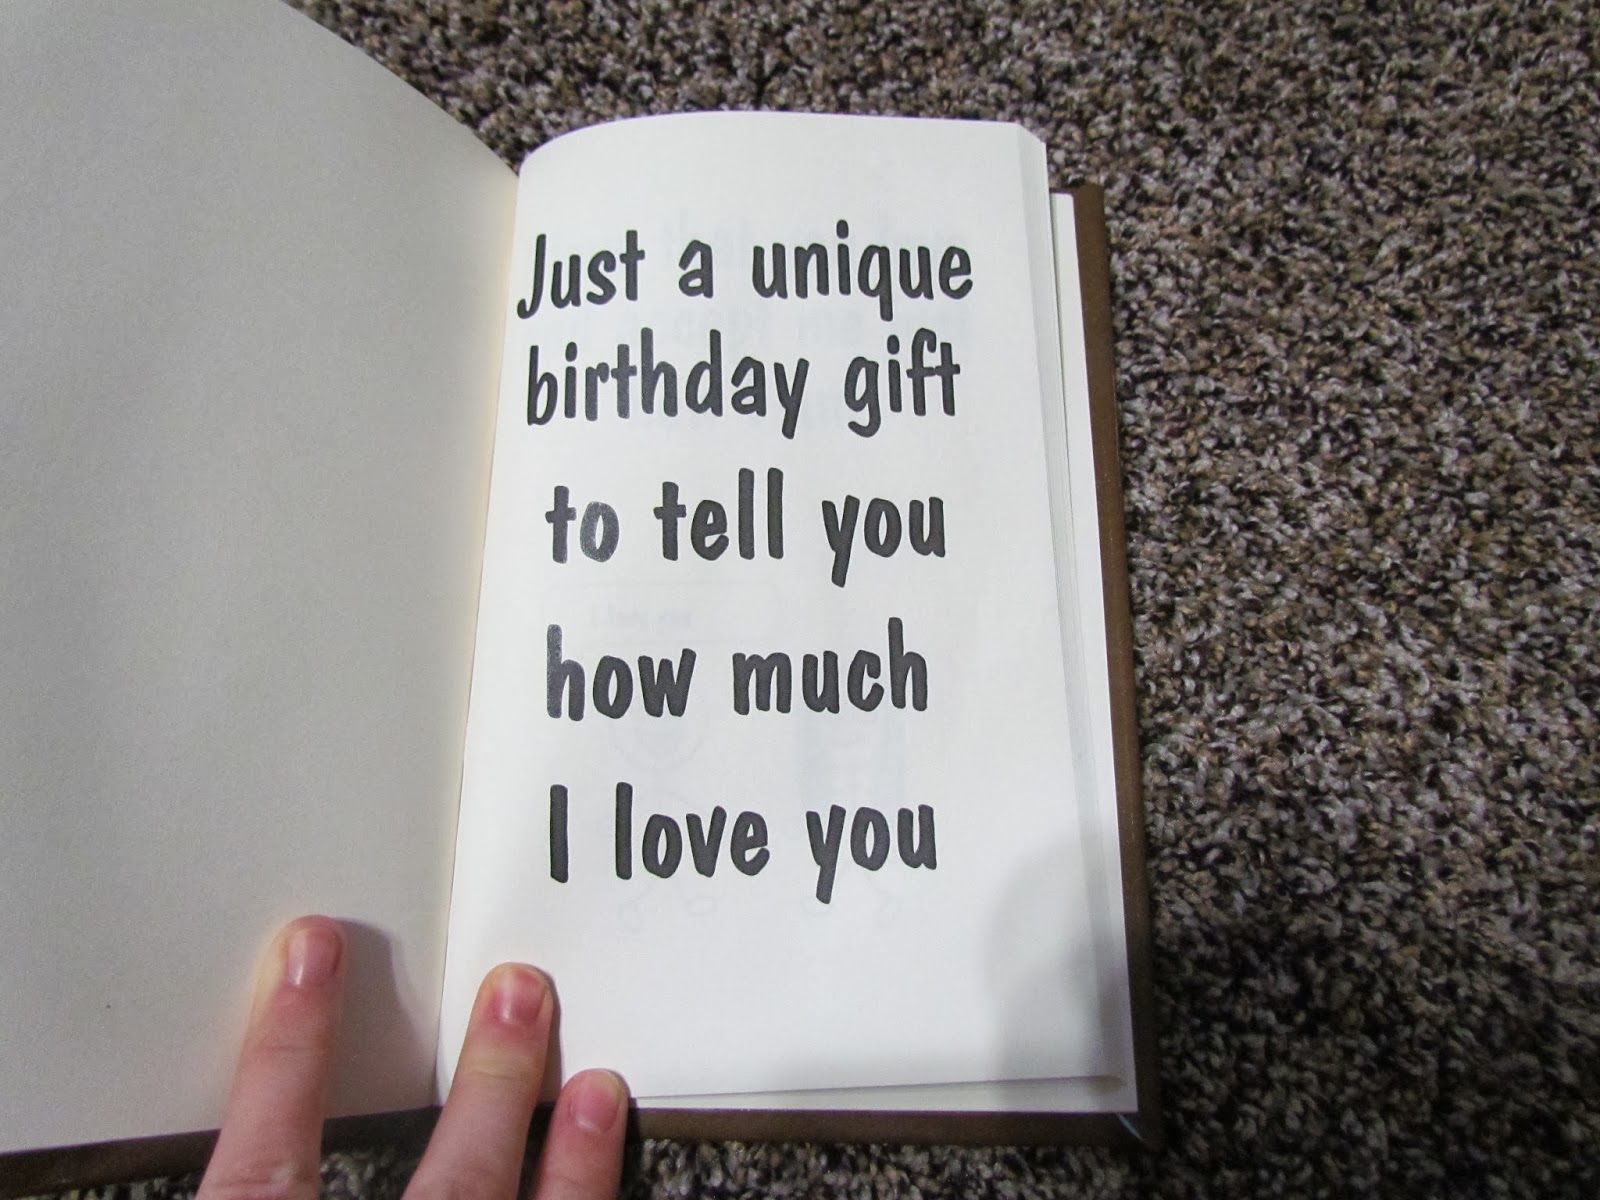 Just a unique
birthday gift
to tell you
how much
I love you